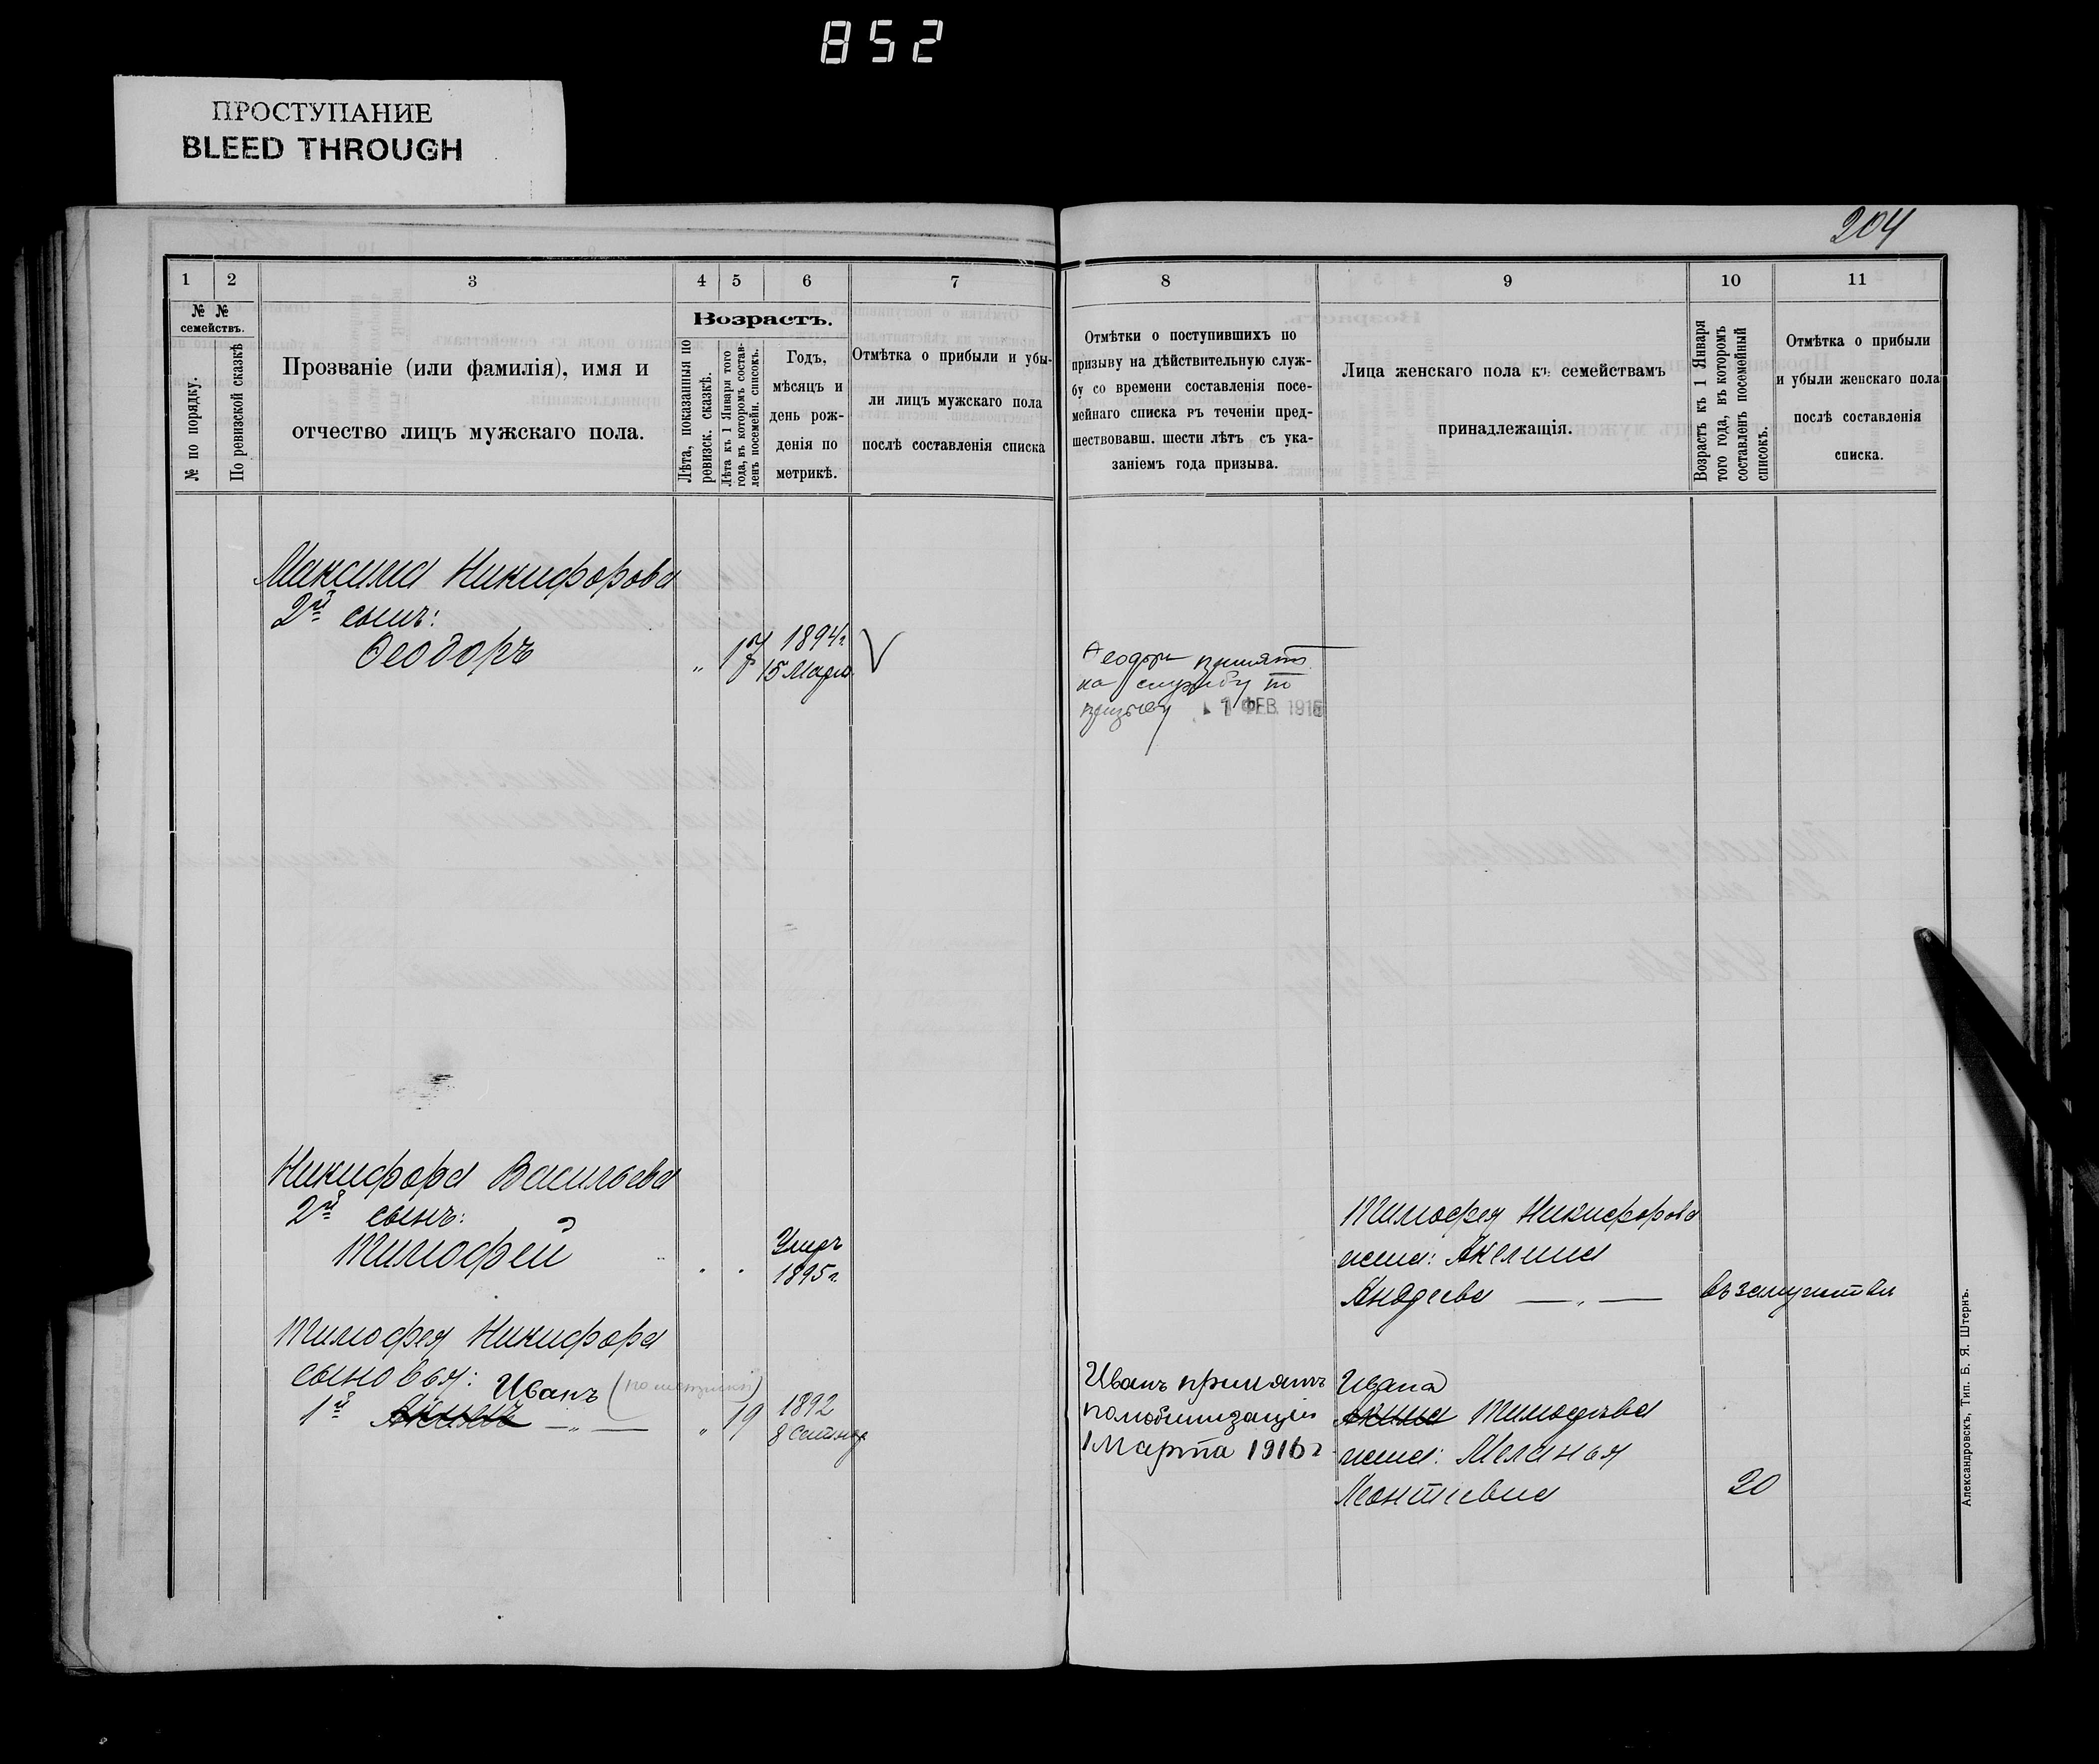 852
ПРОСТУПАНИЕ
BLEED THROUGH
204
1 2 3 4 5 6 7 8 9 10 11
№ № семействъ.
№ по порядку.
По ревизской сказкѣ
Прозваніе (или фамилія), имя и
отчество лицъ мужскаго пола.
Возрастъ.
Лѣта, показанныя по
ревизск. сказкѣ.
Лѣта къ 1 Января того
года, въ которомъ состав-
ленъ посемейн. списокъ.
Годъ,
мѣсяцъ и
день рож-
денія по
метрикѣ.
Отмѣтка о прибыли и убы-
ли лицъ мужскаго пола
послѣ составленія списка
Отмѣтки о поступившихъ по
призыву на дѣйствительную служ-
бу со времени составленія посе-
мейнаго списка въ теченіи пред-
шествовавш. шести лѣтъ съ ука-
заніемъ года призыва.
Лица женскаго пола къ семействамъ
принадлежащія.
Возрастъ къ 1 Января
того года, въ которомъ
составленъ посемейный
списокъ.
Отмѣтка о прибыли
и убыли женскаго пола
послѣ составленія
списка.
Максима Никифорова
2й сынъ:
Ѳеодоръ „ 1894г.
15 Марта
Ѳеодоръ принятъ
на службу по
призыву ФЕВ. 1915
Никифора Васильева
2й сынъ:
Тимофей
Умеръ
1895г.
Тимофея Никифорова
жена: Акелина
Андреева — „ — въ замужствѣ
Тимофея Никифора
сыновья: Иванъ
1й Акимъ — „ — „ 19 1892
8 Сентяб
Иванъ принятъ
помобилизаціи
1 Марта 1916г
Ивана
Акима Тимофѣева
жена: Меланья
Леонтіевна 20
Александровскъ, Тип. Б. Я. Штернъ.